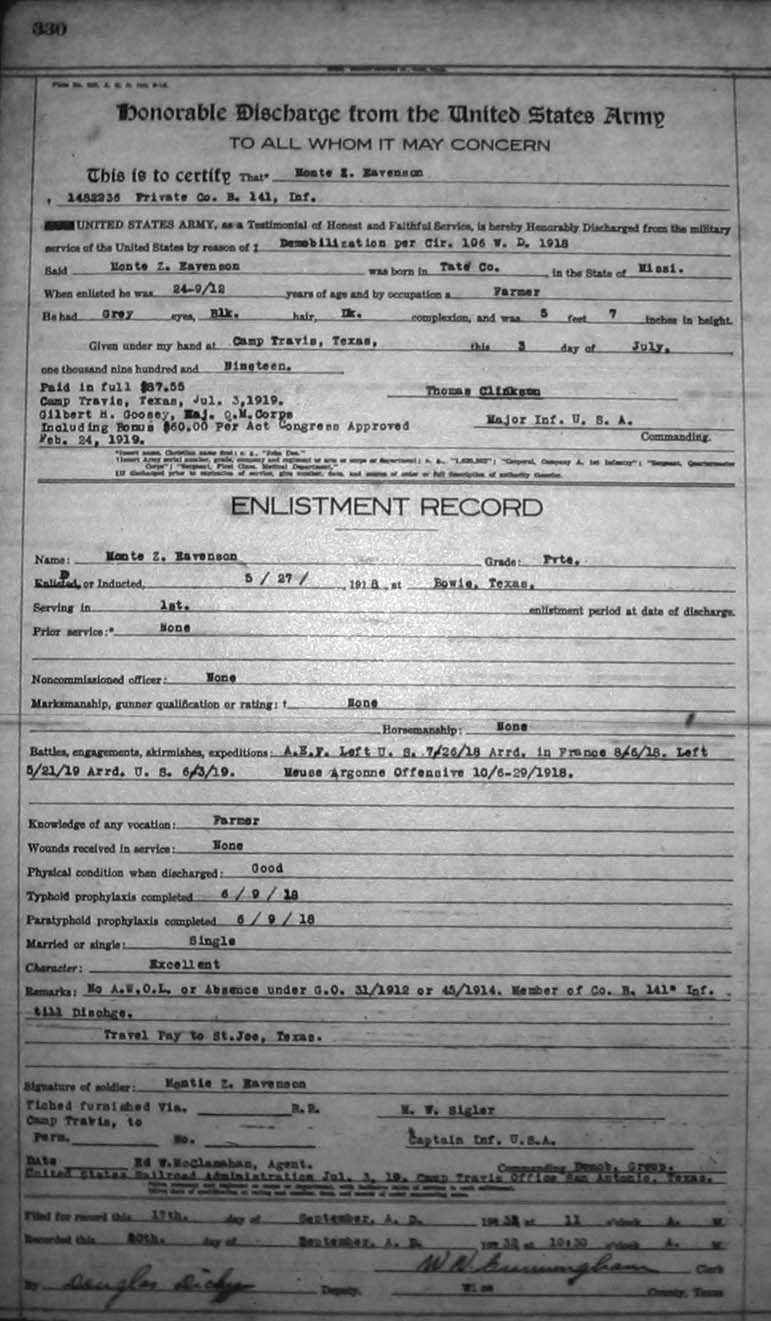 330
Honorable Discharge from the United States Army
TO ALL WHOM IT MAY CONCERN
This is to certify That* Monte Z. Eavenson
, 1482236 Private Co. B. 141, Inf.
UNITED STATES ARMY, as a Testimonial of Honest and Faithful Service, is hereby Honorably Discharged from the military
service of the United States by reason of ‡ Demobilization per Cir. 106 W. D. 1918
Said Monte Z. Eavenson was born in Tate Co. , in the State of Missi.
When enlisted he was 24-9/12 years of age and by occupation a Farmer
He had Grey eyes, Blk. hair, Dk. complexion, and was 5 feet 7 inches in height.
Given under my hand at Camp Travis, Texas, this 3 day of July,
one thousand nine hundred and Nineteen.
Paid in full $87.55
Camp Travis, Texas, Jul. 3,1919.
Gilbert H. Goosey, Maj. Q.M.Corps
Including Bonus $60.00 Per Act Congress Approved
Feb. 24, 1919.
Thomas Clinkson
Major Inf. U. S. A.
Commanding.
*Insert name, Christian name first; e. g., "John Doe."
†Insert Army serial number, grade, company and regiment or arm or corps or department; e. g., "1,620,302"; "Corporal, Company A, 1st Infantry"; "Sergeant, Quartermaster
Corps"; "Sergeant, First Class, Medical Department."
‡If discharged prior to expiration of service, give number, date, and source of order or full description of authority therefor.
ENLISTMENT RECORD
Name: Monte Z. Eavenson Grade: Prte.
Enlisted, or Inducted, 5 / 27 / , 1918, at Bowie, Texas.
Serving in 1st. enlistment period at date of discharge.
Prior service:* None
Noncommissioned officer: None
Marksmanship, gunner qualification or rating: † None
Horsemanship: None
Battles, engagements, skirmishes, expeditions: A.E.F. Left U. S. 7/26/18 Arrd. in France 8/6/18. Left
5/21/19 Arrd. U. S. 6/3/19. Meuse Argonne Offensive 10/6-29/1918.
Knowledge of any vocation: Farmer
Wounds received in service: None
Physical condition when discharged: Good
Typhoid prophylaxis completed 6 / 9 / 18
Paratyphoid prophylaxis completed 6 / 9 / 18
Married or single: Single
Character: Excellent
Remarks: No A.W.O.L. or Absence under G.O. 31/1912 or 45/1914. Member of Co. B. 141" Inf.
till Dischge.
Travel Pay to St.Joe, Texas.
Signature of soldier: Montie Z. Eavenson
Tiched furnished Via. R.R.
Camp Travis, to
Perm. No.
M. W. Sigler
Captain Inf. U.S.A.
Date Ed W.McClanahan, Agent. Commanding Demob. Group.
United States Railroad Administration Jul. 3, 19. Camp Travis Office San Antonio, Texas.
Filed for record this 17th. day of September, A. D. 1932 at 11 o'clock A. M.
Recorded this 20th. day of September, A. D. 1932 at 10:30 o'clock A. M.
W N Cunningham Clerk
By Douglas Dickey Deputy, Wise County, Texas